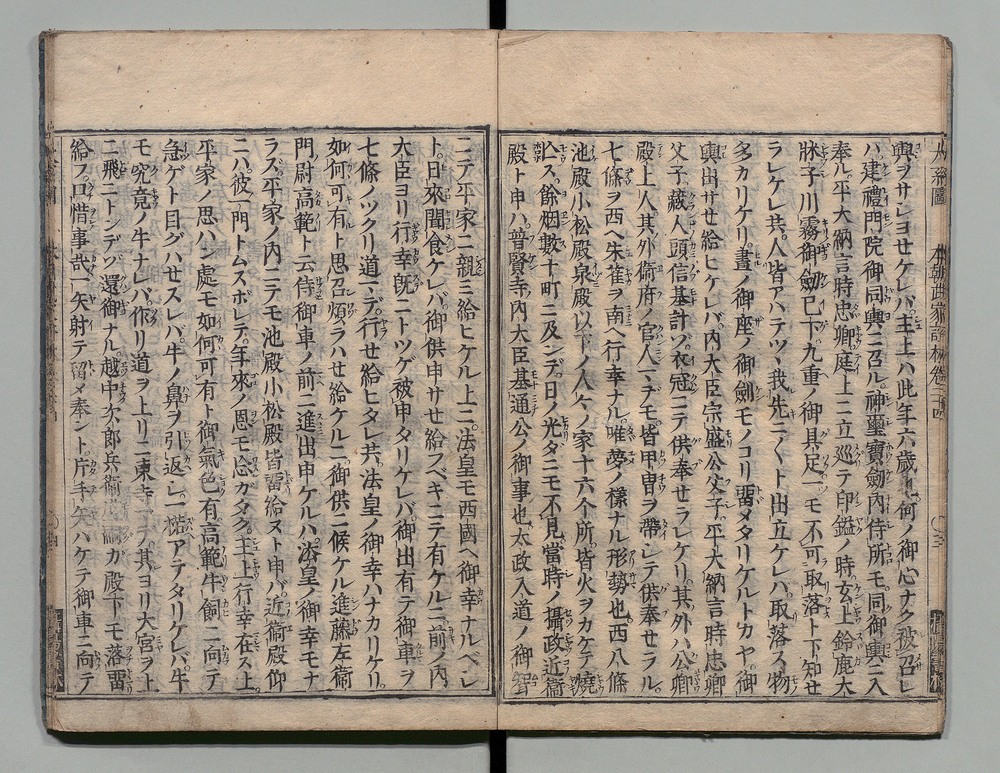 輿ヲサシヨセケレバ主上ハ此年六歳何ノ御心ナク被召シ
ハ建禮門院御同輿ニ召ル神璽寶劔内侍所モ同御輿ニ入
奉ル平大納言時忠卿庭上ニ立巡テ印鎰ノ時玄上鈴鹿大
牀子川霧御劔已下九重ノ御具足一モ不可取落ト下知せ
ラレケレ共人皆アハテツヽ我先ニ〱ト出立ケレバ取落ス物
多カリケリ晝ノ御座ノ御劔モノコリ畱メタリケルトカヤ御
輿出サせ給ヒケレバ内大臣宗盛公父子平大納言時忠卿
父子藏人頭信基計ソ衣冠ニテ供奉せラレケリ其外ハ公卿
殿上人其外衛府ノ官人マデモ皆甲冑ヲ帶シテ供奉せラル
七條ヲ西ヘ朱雀ヲ南ヘ行幸ナル唯夢ノ樣ナル形勢也西八條
池殿小松殿泉殿以下ノ人々ノ家十六个所皆火ヲカケテ燒
亡ス餘烟數十町ニ及ンデ日ノ光ダニモ不見當時ノ攝政近衞
殿ト申ハ普賢寺内大臣基通公ノ御事也太政入道ノ御聟
ニテ平家ニ親ミ給ヒケル上ニ法皇モ西國ヘ御幸ナルベシ
ト日來聞食ケレバ御供申サせ給フベキニテ有ケルニ前ノ内
大臣ヨリ行幸既ニトツゲ被申タリケレバ御出有テ御車ヲ
七條ノツクリ道マデ行せ給ヒタレ共法皇ノ御幸ハナカリケリ
如何可有ト思召煩ラハせ給ケルニ御供ニ候ケル進藤左衞
門尉高範ト云侍御車ノ前ニ進出申ケルハ法皇ノ御幸モナ
ラズ平家ノ内ニテモ池殿小松殿皆畱給ヌト申バ近衞殿仰
ニハ彼一門トムスボレテ年來ノ恩モ忘ガタク主上行幸在ス上
平家ノ思ハン處モ如何可有ト御氣色有高範牛飼ニ向テ
急ゲト目グハせスレバ牛ノ鼻ヲ引返シ楉アテタリケレバ牛
モ究竟ノ牛ナレバ作リ道ヲ上リニ東寺マデ其ヨリ大宮ヲ上
ニ飛ニトンデゾ還御ナル越中次郎兵衞盛嗣カ殿下モ落畱
給フ口惜事哉一矢射テ畱メ奉ント片手矢ハケテ御車ニ向テ